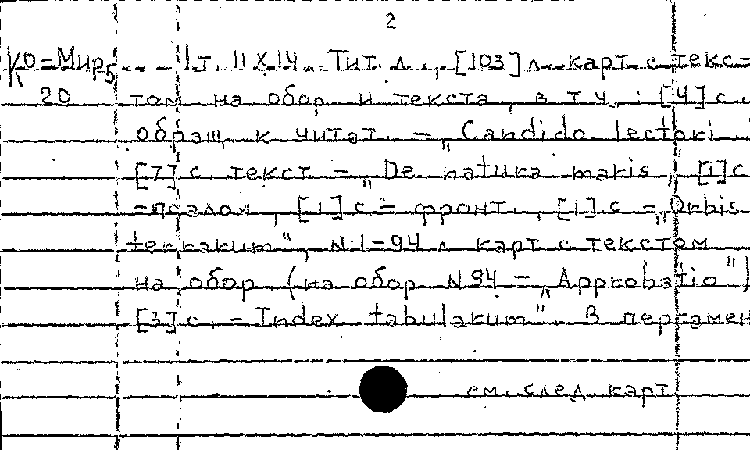 2
Ко-Мир5 .. - 1 т. 11 X 14. Тит. л., [103] л. карт с текс-
20 том на обор. и текста, в т.ч.: [4] с.
обращ. к читат. - „Candido lectori",
[7] с. текст - „De natura maris", [1] с.
- псалом, [1] с. - фронт., [1] с. - „Orbis
terrarum", N 1-94 л. карт с текстом
на обор. (на обор. N 94 - „Approbatio")
[3] с. - Index tabularum". В пергамен
см. след. карт.